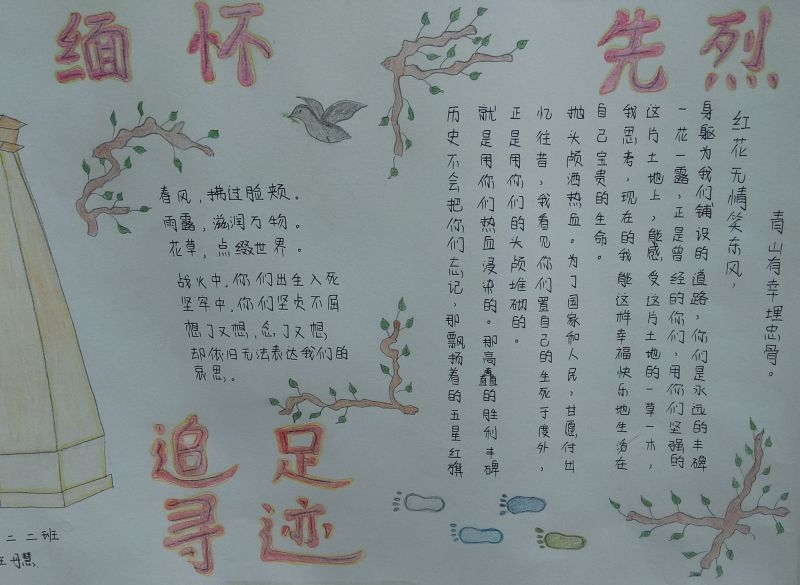 缅怀先烈
春风，拂过脸颊。
雨露，滋润万物。
花草，点缀世界。
战火中，你们出生入死
坚牢中，你们坚贞不屈
想了又想，念了又想
却依旧无法表达我们的
哀思。
历史不会把你们忘记，那飘扬着的五星红旗
就是用你们热血浸染的。那高矗的胜利丰碑
正是用你们的头颅堆砌的。
忆往昔，我看见你们置自己的生死于度外，
抛头颅洒热血。为了国家和人民，甘愿付出
自己宝贵的生命。
我思考，现在的我能这样幸福快乐地生活在
这片土地上，能感受这片土地的一草一木，
一花一露，正是曾经的你们，用你们坚强的
身躯为我们铺设的道路，你们是永远的丰碑
红花无情笑东风，
青山有幸埋忠骨。
追寻
足迹
二二班
王丹慧